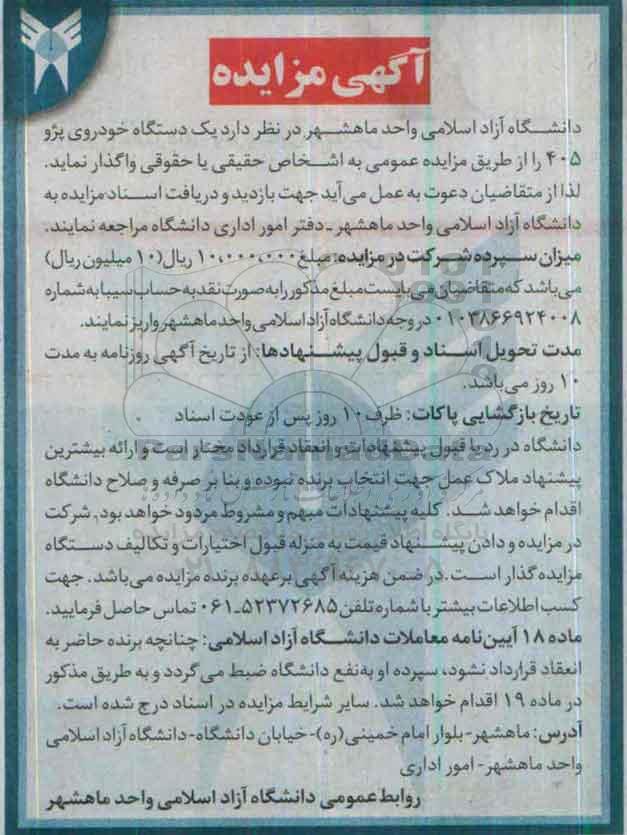 آگهی مزایده
دانشگاه آزاد اسلامی واحد ماهشهر در نظر دارد یک دستگاه خودروی پژو
۴۰۵ را از طریق مزایده عمومی به اشخاص حقیقی یا حقوقی واگذار نماید.
لذا از متقاضیان دعوت به عمل می‌آید جهت بازدید و دریافت اسناد مزایده به
دانشگاه آزاد اسلامی واحد ماهشهر ـ دفتر امور اداری دانشگاه مراجعه نمایند.
میزان سپرده شرکت در مزایده: مبلغ ۱۰،۰۰۰،۰۰۰ ریال (۱۰ میلیون ریال)
می‌باشد که متقاضیان می‌بایست مبلغ مذکور را به صورت نقد به حساب سیبا به شماره
۰۱۰۳۸۶۶۹۲۴۰۰۸ در وجه دانشگاه آزاد اسلامی واحد ماهشهر واریز نمایند.
مدت تحویل اسناد و قبول پیشنهادها: از تاریخ آگهی روزنامه به مدت
۱۰ روز می‌باشد.
تاریخ بازگشایی پاکات: ظرف ۱۰ روز پس از عودت اسناد
دانشگاه در رد یا قبول پیشنهادات و انعقاد قرارداد مختار است و ارائه بیشترین
پیشنهاد ملاک عمل جهت انتخاب برنده نبوده و بنا بر صرفه و صلاح دانشگاه
اقدام خواهد شد. کلیه پیشنهادات مبهم و مشروط مردود خواهد بود. شرکت
در مزایده و دادن پیشنهاد قیمت به منزله قبول اختیارات و تکالیف دستگاه
مزایده گذار است. در ضمن هزینه آگهی برعهده برنده مزایده می‌باشد. جهت
کسب اطلاعات بیشتر با شماره تلفن ۵۲۳۷۲۶۸۵-۰۶۱ تماس حاصل فرمایید.
ماده ۱۸ آیین‌نامه معاملات دانشگاه آزاد اسلامی: چنانچه برنده حاضر به
انعقاد قرارداد نشود، سپرده او به‌نفع دانشگاه ضبط می‌گردد و به طریق مذکور
در ماده ۱۹ اقدام خواهد شد. سایر شرایط مزایده در اسناد درج شده است.
آدرس: ماهشهر- بلوار امام خمینی (ره)- خیابان دانشگاه- دانشگاه آزاد اسلامی
واحد ماهشهر- امور اداری
روابط عمومی دانشگاه آزاد اسلامی واحد ماهشهر